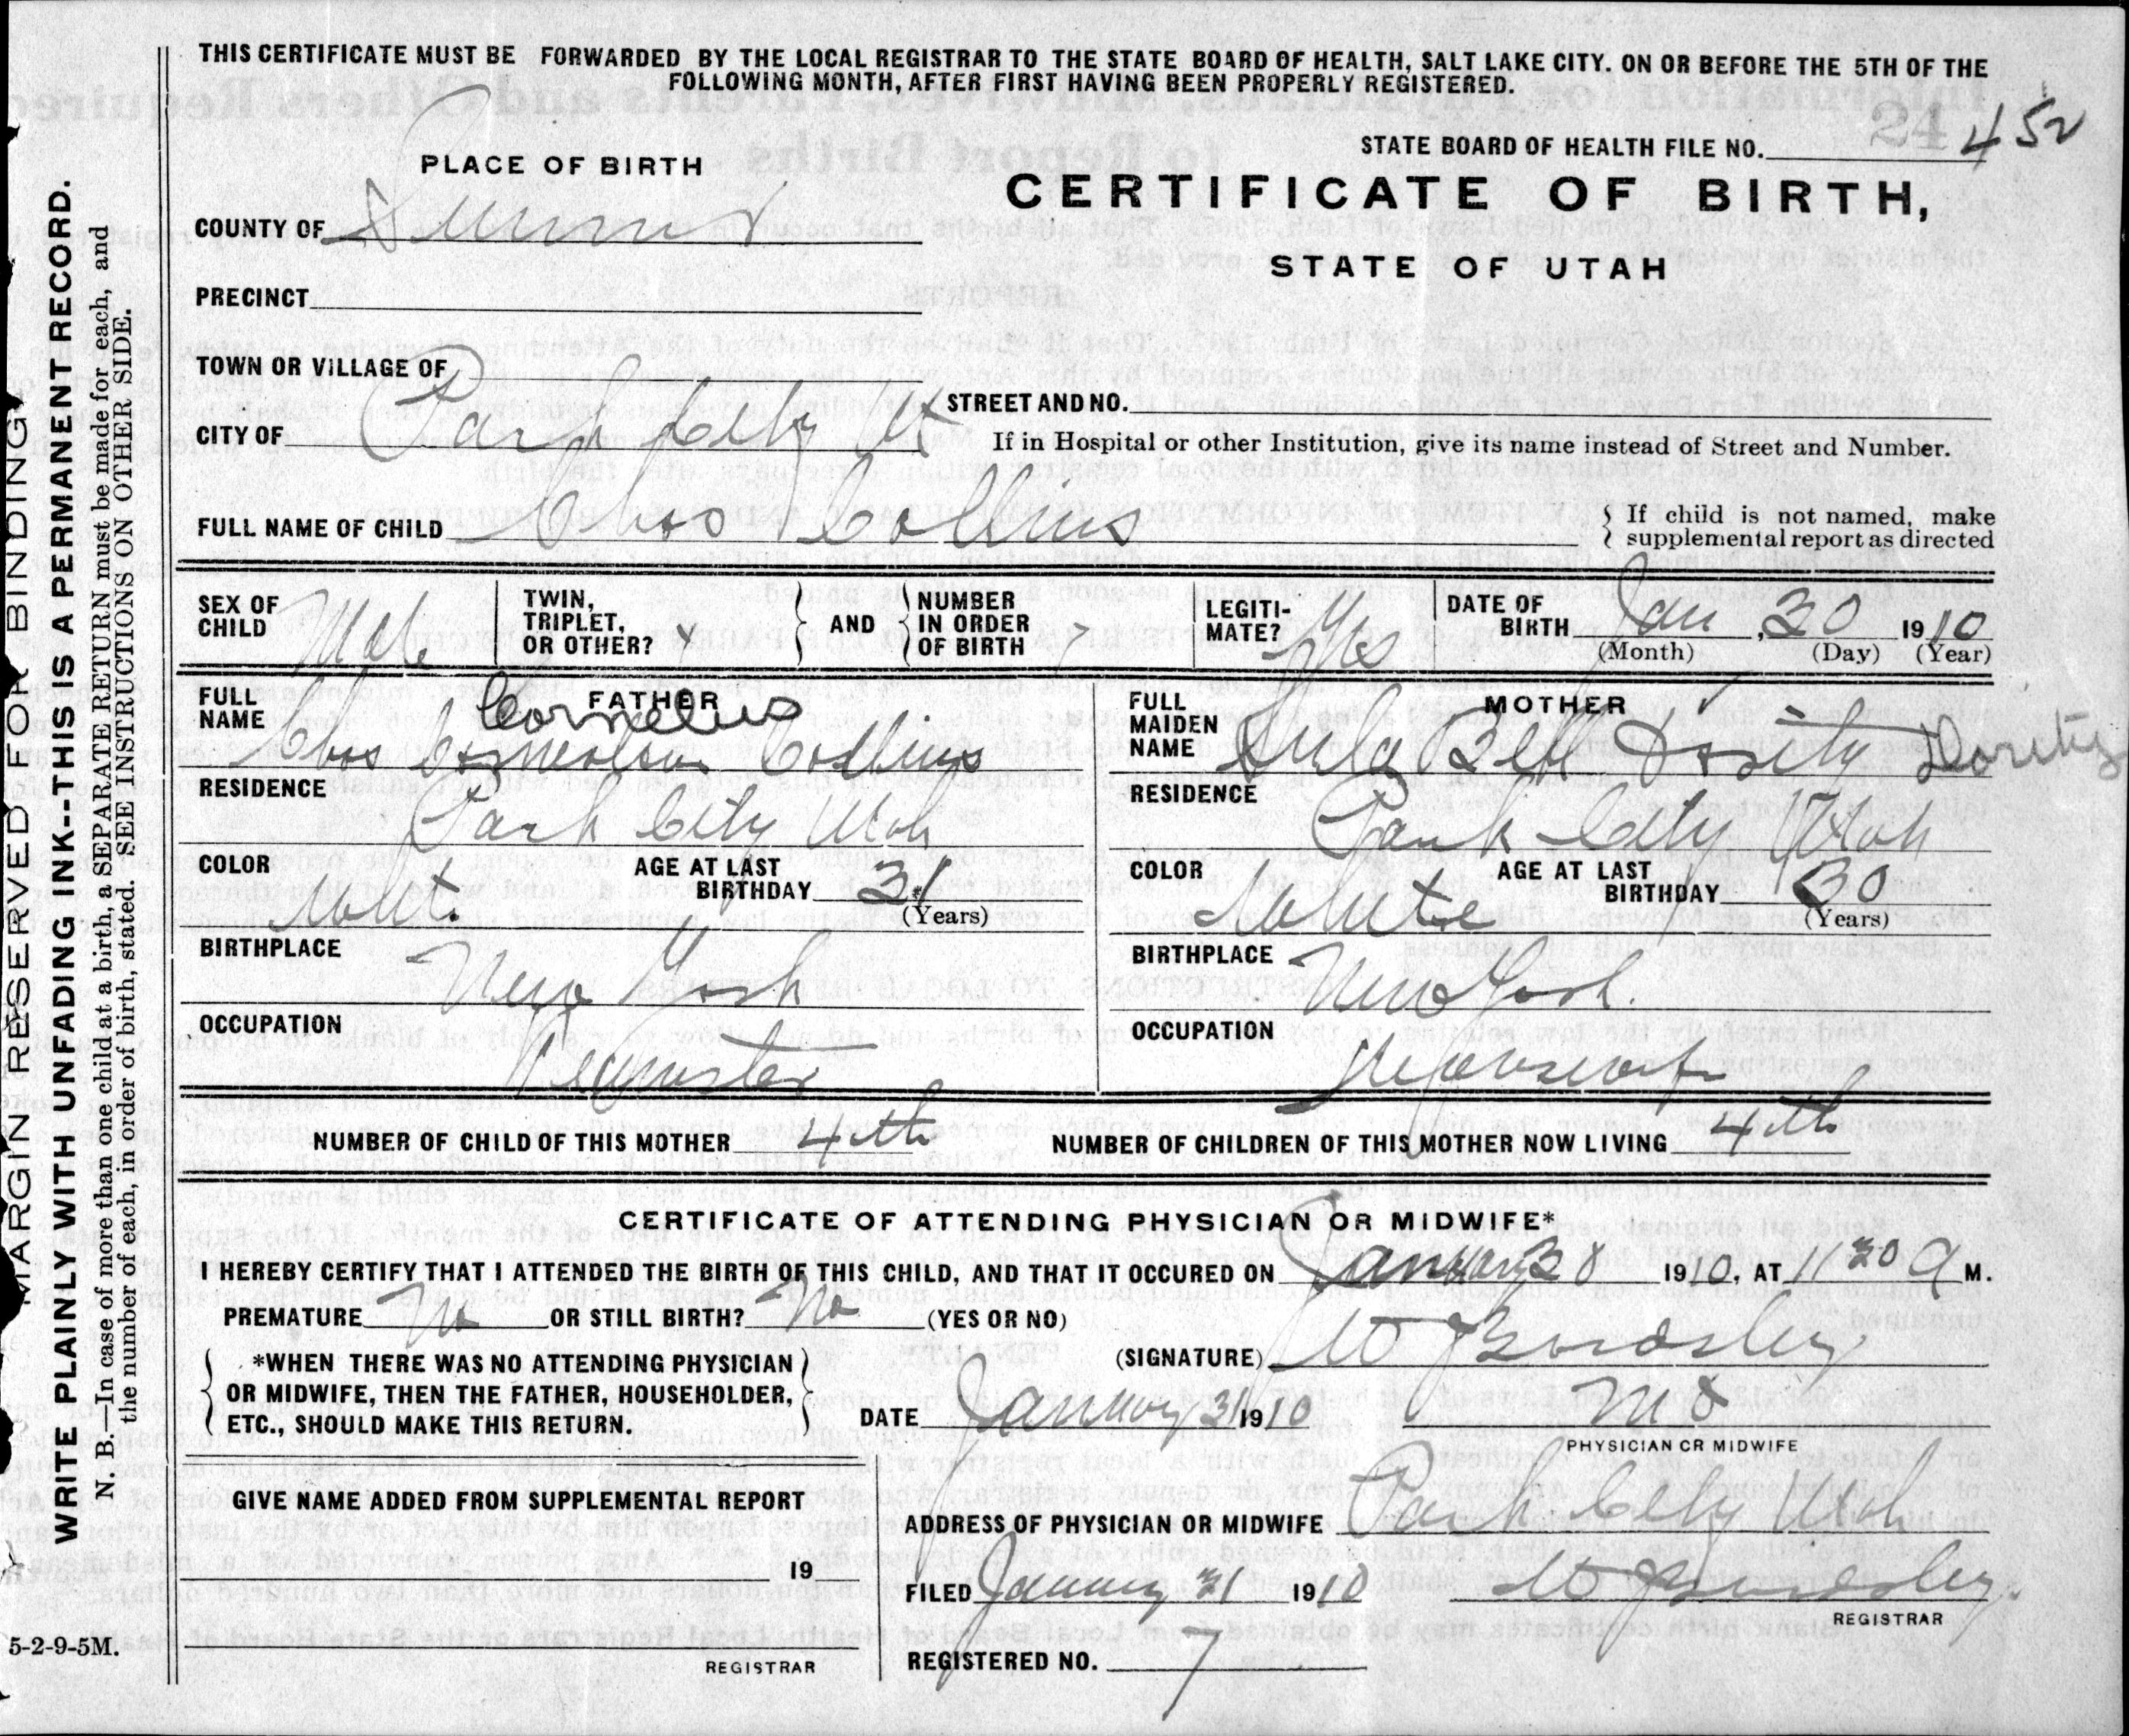 THIS CERTIFICATE MUST BE FORWARDED BY THE LOCAL REGISTRAR TO THE STATE BOARD OF HEALTH, SALT LAKE CITY. ON OR BEFORE THE 5TH OF THE
FOLLOWING MONTH, AFTER FIRST HAVING BEEN PROPERLY REGISTERED.
24
STATE BOARD OF HEALTH FILE NO. 452
PLACE OF BIRTH
CERTIFICATE OF BIRTH,
STATE OF UTAH
COUNTY OF Summit
PRECINCT
TOWN OR VILLAGE OF
STREET AND NO.
CITY OF Park City Ut
If in Hospital or other Institution, give its name instead of Street and Number.
FULL NAME OF CHILD Chas Collins
If child is not named, make
supplemental report as directed
SEX OF CHILD Male
TWIN, TRIPLET, OR OTHER?
AND
NUMBER IN ORDER OF BIRTH
LEGITI-MATE? Yes
DATE OF BIRTH Jan, 30 1910
(Month) (Day) (Year)
FATHER
FULL NAME Chas Cornelius Collins
RESIDENCE Park City Utah
COLOR Wht.
AGE AT LAST BIRTHDAY 31
(Years)
BIRTHPLACE New York
OCCUPATION Teamster
MOTHER
FULL MAIDEN NAME Lula Bell Dority Dority
RESIDENCE Park City Utah
COLOR White
AGE AT LAST BIRTHDAY 30
(Years)
BIRTHPLACE New York.
OCCUPATION Housewife
NUMBER OF CHILD OF THIS MOTHER 4th
NUMBER OF CHILDREN OF THIS MOTHER NOW LIVING 4th
CERTIFICATE OF ATTENDING PHYSICIAN OR MIDWIFE*
I HEREBY CERTIFY THAT I ATTENDED THE BIRTH OF THIS CHILD, AND THAT IT OCCURED ON January 30 1910, AT 11 30 A M.
PREMATURE No OR STILL BIRTH? No (YES OR NO)
*WHEN THERE WAS NO ATTENDING PHYSICIAN
OR MIDWIFE, THEN THE FATHER, HOUSEHOLDER,
ETC., SHOULD MAKE THIS RETURN.
(SIGNATURE) W J Bardsley
DATE January 31 1910
M D
PHYSICIAN OR MIDWIFE
GIVE NAME ADDED FROM SUPPLEMENTAL REPORT
19
REGISTRAR
ADDRESS OF PHYSICIAN OR MIDWIFE Park City Utah
FILED January 31 1910 W J Bardsley
REGISTRAR
REGISTERED NO. 7
5-2-9-5M.
MARGIN RESERVED FOR BINDING
WRITE PLAINLY WITH UNFADING INK--THIS IS A PERMANENT RECORD.
N. B.—In case of more than one child at a birth, a SEPARATE RETURN must be made for each, and
the number of each, in order of birth, stated. SEE INSTRUCTIONS ON OTHER SIDE.